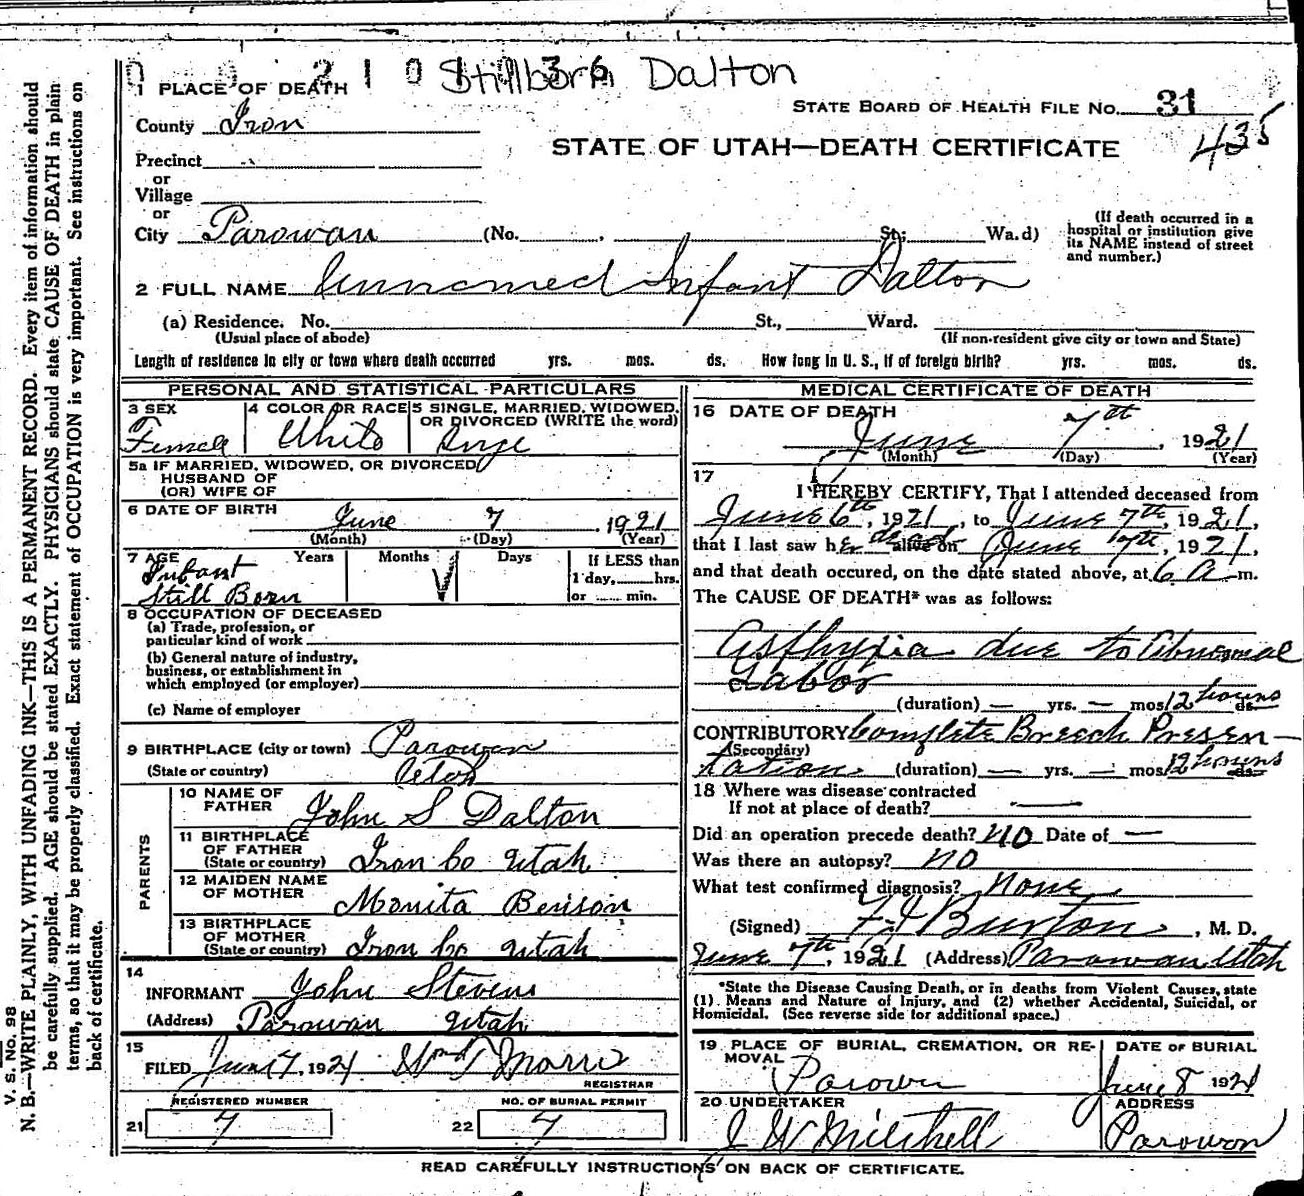 Stillborn Dalton
1 PLACE OF DEATH
STATE BOARD OF HEALTH FILE NO. 31
County Iron
435
STATE OF UTAH—DEATH CERTIFICATE
Precinct
or
Village
or
City Parowan (No. , St; Wa.d)
(If death occurred in a hospital or institution give its NAME instead of street and number.)
2 FULL NAME Unnamed Infant Dalton
(a) Residence. No. St., Ward.
(Usual place of abode) (If non-resident give city or town and State)
Length of residence in city or town where death occurred yrs. mos. ds. How long in U. S., if of foreign birth? yrs. mos. ds.
PERSONAL AND STATISTICAL PARTICULARS
3 SEX Female
4 COLOR OR RACE White
5 SINGLE, MARRIED, WIDOWED, OR DIVORCED (WRITE the word)
5a IF MARRIED, WIDOWED, OR DIVORCED
HUSBAND OF
(OR) WIFE OF
6 DATE OF BIRTH June 7, 1921
(Month) (Day) (Year)
7 AGE Years Months Days If LESS than
Infant 1 day, hrs.
Still Born or min.
8 OCCUPATION OF DECEASED
(a) Trade, profession, or
particular kind of work
(b) General nature of industry,
business, or establishment in
which employed (or employer)
(c) Name of employer
9 BIRTHPLACE (city or town) Parowan
(State or country) Utah
PARENTS
10 NAME OF FATHER John S Dalton
11 BIRTHPLACE OF FATHER (State or country) Iron Co Utah
12 MAIDEN NAME OF MOTHER Monita Benson
13 BIRTHPLACE OF MOTHER (State or country) Iron Co Utah
14
INFORMANT John Stevens
(Address) Parowan Utah
15
FILED June 7, 1921 Wm T Morris
REGISTRAR
REGISTERED NUMBER NO. OF BURIAL PERMIT
21 7 22 7
MEDICAL CERTIFICATE OF DEATH
16 DATE OF DEATH
June 7th, 1921
(Month) (Day) (Year)
17
I HEREBY CERTIFY, That I attended deceased from
June 6th, 1921, to June 7th, 1921,
that I last saw her dead alive on June 7th, 1921,
and that death occured, on the date stated above, at 6 A m.
The CAUSE OF DEATH* was as follows:
Asfhyxia due to Abnormal
Labor
(duration) — yrs. — mos 12 hours ds.
CONTRIBUTORY Complete Breech Presen-
(Secondary)
tation (duration) — yrs. — mos 12 hours ds.
18 Where was disease contracted
If not at place of death? —
Did an operation precede death? NO Date of —
Was there an autopsy? NO
What test confirmed diagnosis? None
(Signed) F J Burton, M. D.
June 7th, 1921 (Address) Parowan Utah
*State the Disease Causing Death, or in deaths from Violent Causes, state
(1) Means and Nature of Injury, and (2) whether Accidental, Suicidal, or
Homicidal. (See reverse side for additional space.)
19 PLACE OF BURIAL, CREMATION, OR RE-
MOVAL Parowan
DATE OF BURIAL
June 8 1921
20 UNDERTAKER
J W Mitchell
ADDRESS
Parowan
READ CAREFULLY INSTRUCTIONS ON BACK OF CERTIFICATE.
V. S. No. 98
N. B.—WRITE PLAINLY, WITH UNFADING INK—THIS IS A PERMANENT RECORD. Every item of information should
be carefully supplied. AGE should be stated EXACTLY. PHYSICIANS should state CAUSE OF DEATH in plain
terms, so that it may be properly classified. Exact statement of OCCUPATION is very important. See instructions on
back of certificate.